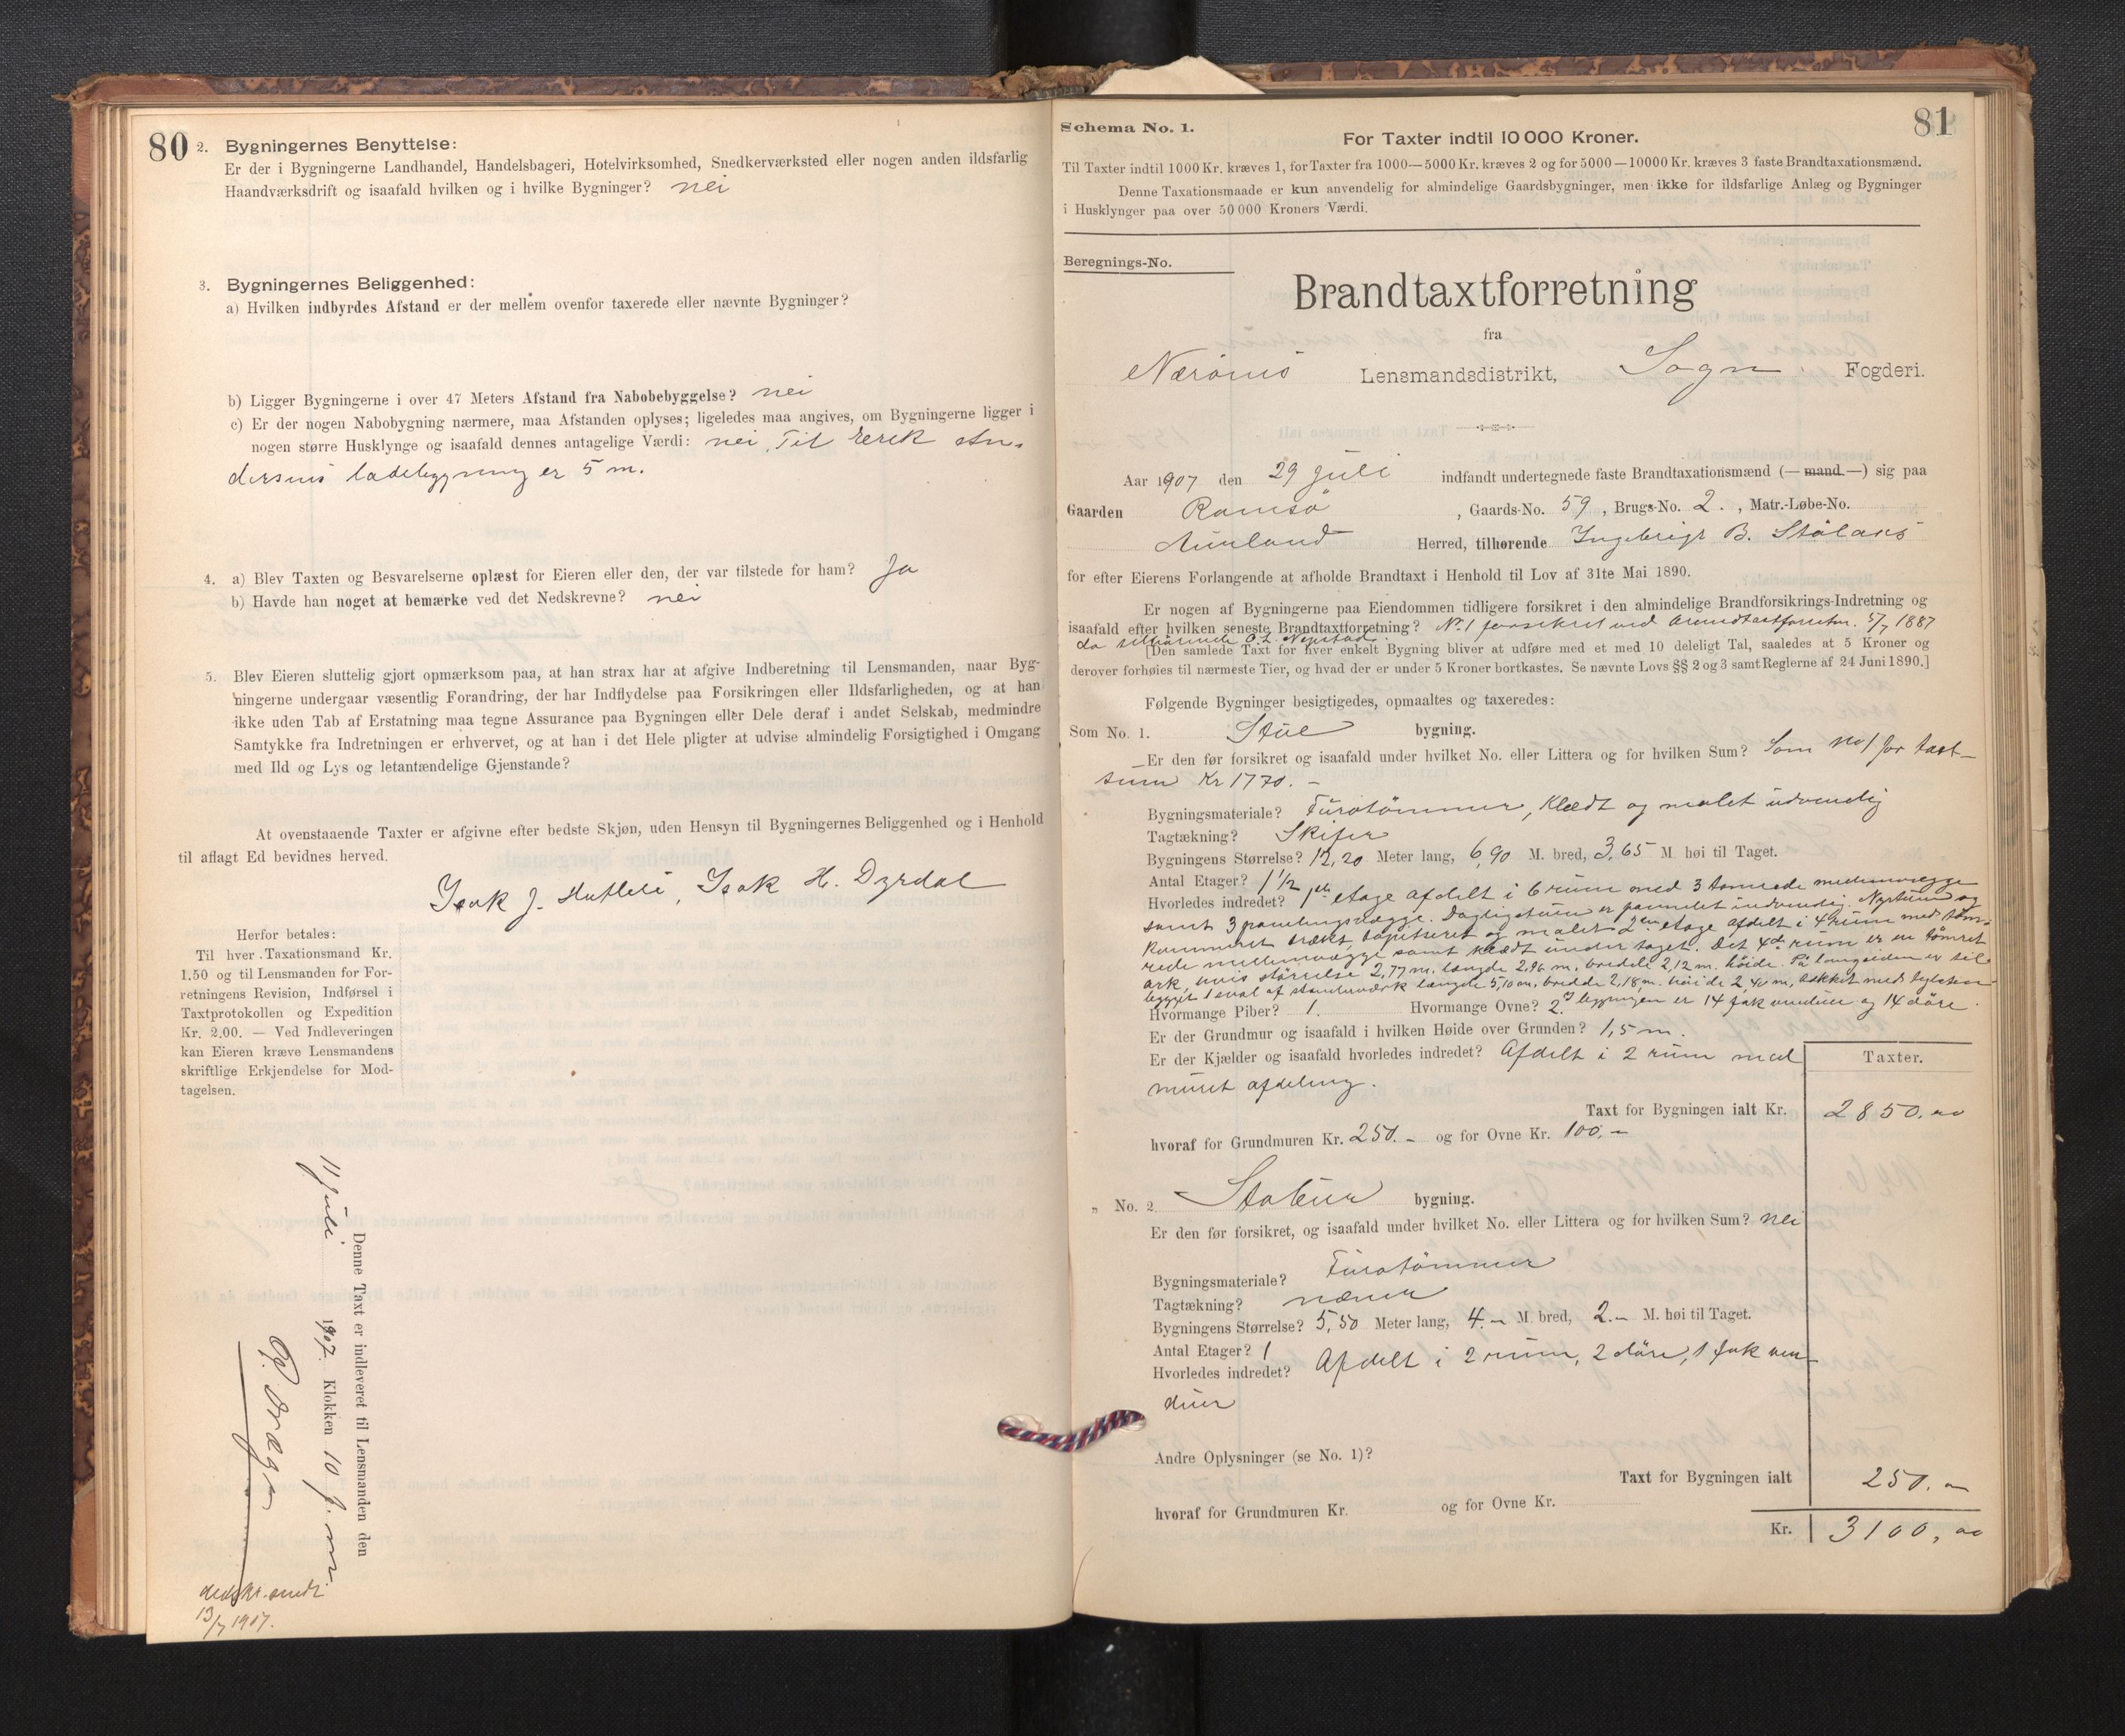 80
2. Bygningernes Benyttelse:
Er der i Bygningerne Landhandel, Handelsbageri, Hotelvirksomhed, Snedkerværksted eller nogen anden ildsfarlig
Haandværksdrift og isaafald hvilken og i hvilke Bygninger? nei
3. Bygningernes Beliggenhed:
a) Hvilken indbyrdes Afstand er der mellem ovenfor taxerede eller nævnte Bygninger?
b) Ligger Bygningerne i over 47 Meters Afstand fra Nabobebyggelse? nei
c) Er der nogen Nabobygning nærmere, maa Afstanden oplyses; ligeledes maa angives, om Bygningerne ligger i
nogen større Husklynge og isaafald dennes antagelige Værdi: nei, Til Erek An-
dersens ladebygning er 5 m.
4. a) Blev Taxten og Besvarelserne oplæst for Eieren eller den, der var tilstede for ham? Ja
b) Havde han noget at bemærke ved det Nedskrevne? nei
5. Blev Eieren sluttelig gjort opmærksom paa, at han strax har at afgive Indberetning til Lensmanden, naar Byg-
ningerne undergaar væsentlig Forandring, der har Indflydelse paa Forsikringen eller Ildsfarligheden, og at han
ikke uden Tab af Erstatning maa tegne Assurance paa Bygningen eller Dele deraf i andet Selskab, medmindre
Samtykke fra Indretningen er erhvervet, og at han i det Hele pligter at udvise almindelig Forsigtighed i Omgang
med Ild og Lys og letantændelige Gjenstande?
At ovenstaaende Taxter er afgivne efter bedste Skjøn, uden Hensyn til Bygningernes Beliggenhed og i Henhold
til aflagt Ed bevidnes herved.
Isak J. Isak H. Dyrdal
Herfor betales:
Til hver Taxationsmand Kr.
1.50 og til Lensmanden for For-
retningens Revision, Indførsel i
Taxtprotokollen og Expedition
Kr. 2.00. — Ved Indleveringen
kan Eieren kræve Lensmandens
skriftlige Erkjendelse for Mod-
tagelsen.
Denne Taxt er indleveret til Lensmanden den
11 Juli 1907. Klokken 10 f. m.
13/7 1907.
81
Schema No. 1.
For Taxter indtil 10 000 Kroner.
Til Taxter indtil 1000 Kr. kræves 1, for Taxter fra 1000—5000 Kr. kræves 2 og for 5000—10000 Kr. kræves 3 faste Brandtaxationsmænd.
Denne Taxationsmaade er kun anvendelig for almindelige Gaardsbygninger, men ikke for ildsfarlige Anlæg og Bygninger
i Husklynger paa over 50 000 Kroners Værdi.
Beregnings-No.
Brandtaxtforretning
fra
Nærøens Lensmandsdistrikt, Sogn Fogderi.
Aar 1907 den 29 Juli indfandt undertegnede faste Brandtaxationsmænd (— mand —) sig paa
Gaarden Ramsø, Gaards-No. 59, Brugs-No. 2., Matr.-Løbe-No.
Aurland Herred, tilhørende Ingebrigt B. Stålans
for efter Eierens Forlangende at afholde Brandtaxt i Henhold til Lov af 31te Mai 1890.
Er nogen af Bygningerne paa Eiendommen tidligere forsikret i den almindelige Brandforsikrings-Indretning og
isaafald efter hvilken seneste Brandtaxtforretning? No. 1 forsikret ved brandtaxtforretn. 5/7 1887
da tilhørende
[Den samlede Taxt for hver enkelt Bygning bliver at udføre med et med 10 deleligt Tal, saaledes at 5 Kroner og
derover forhøies til nærmeste Tier, og hvad der er under 5 Kroner bortkastes. Se nævnte Lovs §§ 2 og 3 samt Reglerne af 24 Juni 1890.]
Følgende Bygninger besigtigedes, opmaaltes og taxeredes:
Som No. 1. Stue bygning.
Er den før forsikret og isaafald under hvilket No. eller Littera og for hvilken Sum? Som No 1 for taxt-
sum Kr 1770.–
Bygningsmateriale? Furutømmer, Klædt og malet udvendig
Tagtækning? Skifer
Bygningens Størrelse? 12,20 Meter lang, 6,90 M. bred, 3,65 M. høi til Taget.
Antal Etager? 1 1/2
Hvorledes indredet? 1ste etage afdelt i 6 rum med 3 tømrede mellemvægge
samt 3 panelingsvægge. Dagligstuen er panelet indvendig. Nystuen og
Kammeret trækt, tapetseret og malet 2den etage afdelt i 4 rum med tøm-
rede mellemvægge samt klædt under taget. Det 4de rum er en tømret
ark, hvis størrelse 2,77 m. længde 2,96 m. bredde 2,12 m. høide. På langsiden er til-
bygget 1 sval af stenderværk længde 5,10 m, bredde 2,18 m. høide 2,40 m,
Hvormange Piber? 1. Hvormange Ovne? 2. I bygningen er 14 fak vinduer og 14 døre.
Er der Grundmur og isaafald i hvilken Høide over Grunden? 1,5 m.
Er der Kjælder og isaafald hvorledes indredet? Afdelt i 2 rum med
muret afdeling.
Taxter.
Taxt for Bygningen ialt Kr. 2850.00
hvoraf for Grundmuren Kr. 250.– og for Ovne Kr. 100.–
" No. 2. Stabur bygning.
Er den før forsikret, og isaafald under hvilket No. eller Littera og for hvilken Sum? nei
Bygningsmateriale? Furutømmer
Tagtækning? næver
Bygningens Størrelse? 5,50 Meter lang, 4.– M. bred, 2.– M. høi til Taget.
Antal Etager? 1
Hvorledes indredet? Afdelt i 2 rum, 2 døre, 1 fak vin-
duer
Andre Oplysninger (se No. 1)?
Taxt for Bygningen ialt 250.–
hvoraf for Grundmuren Kr. og for Ovne Kr.
Kr. 3100,00